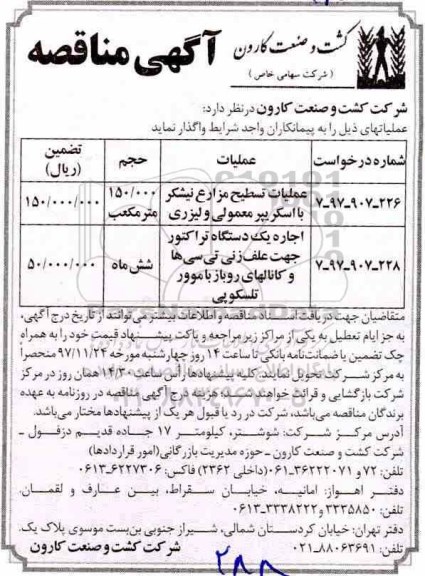 کشت و صنعت کارون
( شرکت سهامی خاص )
آگهی مناقصه
شرکت کشت و صنعت کارون درنظر دارد:
عملیاتهای ذیل را به پیمانکاران واجد شرایط واگذار نماید
شماره درخواست عملیات حجم تضمین (ریال)
۷-۹۷-۹۰۷-۲۲۶ عملیات تسطیح مزارع نیشکر با اسکریپر معمولی و لیزری ۱۵۰/۰۰۰ مترمکعب ۱۵۰/۰۰۰/۰۰۰
۷-۹۷-۹۰۷-۲۲۸ اجاره یک دستگاه تراکتور جهت علف‌زنی تی‌سی‌ها و کانالهای روباز با موور تلسکوپی شش ماه ۵۰/۰۰۰/۰۰۰
متقاضیان جهت دریافت اسناد مناقصه و اطلاعات بیشتر می‌توانند از تاریخ درج آگهی،
به جز ایام تعطیل به یکی از مراکز زیر مراجعه و پاکت پیشنهاد قیمت خود را به همراه
چک تضمین یا ضمانت‌نامه بانکی تا ساعت ۱۴ روز چهارشنبه مورخه ۹۷/۱۱/۲۴ منحصراً
به مرکز شرکت تحویل نمایند. کلیه پیشنهادها رأس ساعت ۱۴/۳۰ همان روز در مرکز
شرکت بازگشایی و قرائت خواهند شد. هزینه درج آگهی مناقصه در روزنامه به عهده
برندگان مناقصه می‌باشد، شرکت در رد یا قبول هر یک از پیشنهادها مختار می‌باشد.
آدرس مرکز شرکت: شوشتر، کیلومتر ۱۷ جاده قدیم دزفول -
شرکت کشت و صنعت کارون - حوزه مدیریت بازرگانی (امور قراردادها)
تلفن: ۷۲ و ۳۶۲۲۲۰۷۱-۰۶۱ (داخلی ۲۳۶۲) فاکس: ۶۲۲۷۳۰۶-۰۶۱۳
دفتر اهواز: امانیه، خیابان سقراط، بین عارف و لقمان.
تلفن: ۳۳۳۵۸۵۰ و ۳۳۳۸۲۲۲-۰۶۱۳
دفتر تهران: خیابان کردستان شمالی، شیراز جنوبی بن‌بست موسوی پلاک یک.
تلفن: ۸۸۰۶۳۶۹۱-۰۲۱
شرکت کشت و صنعت کارون
۲۸۸